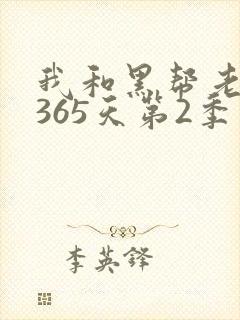 我和黑帮老
365天第2季
李英铎